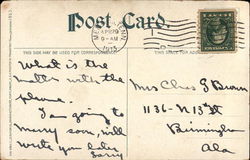 Post Card.
THIS SIDE MAY BE USED FOR CORRESPONDENCE
APR 29
9 - AM
1913
What is the
matter with the
phone.
I am going to
marry soon, will
write you later
Mrs Chas G Brown
1136 - N 13th St
Birmingham
Ala